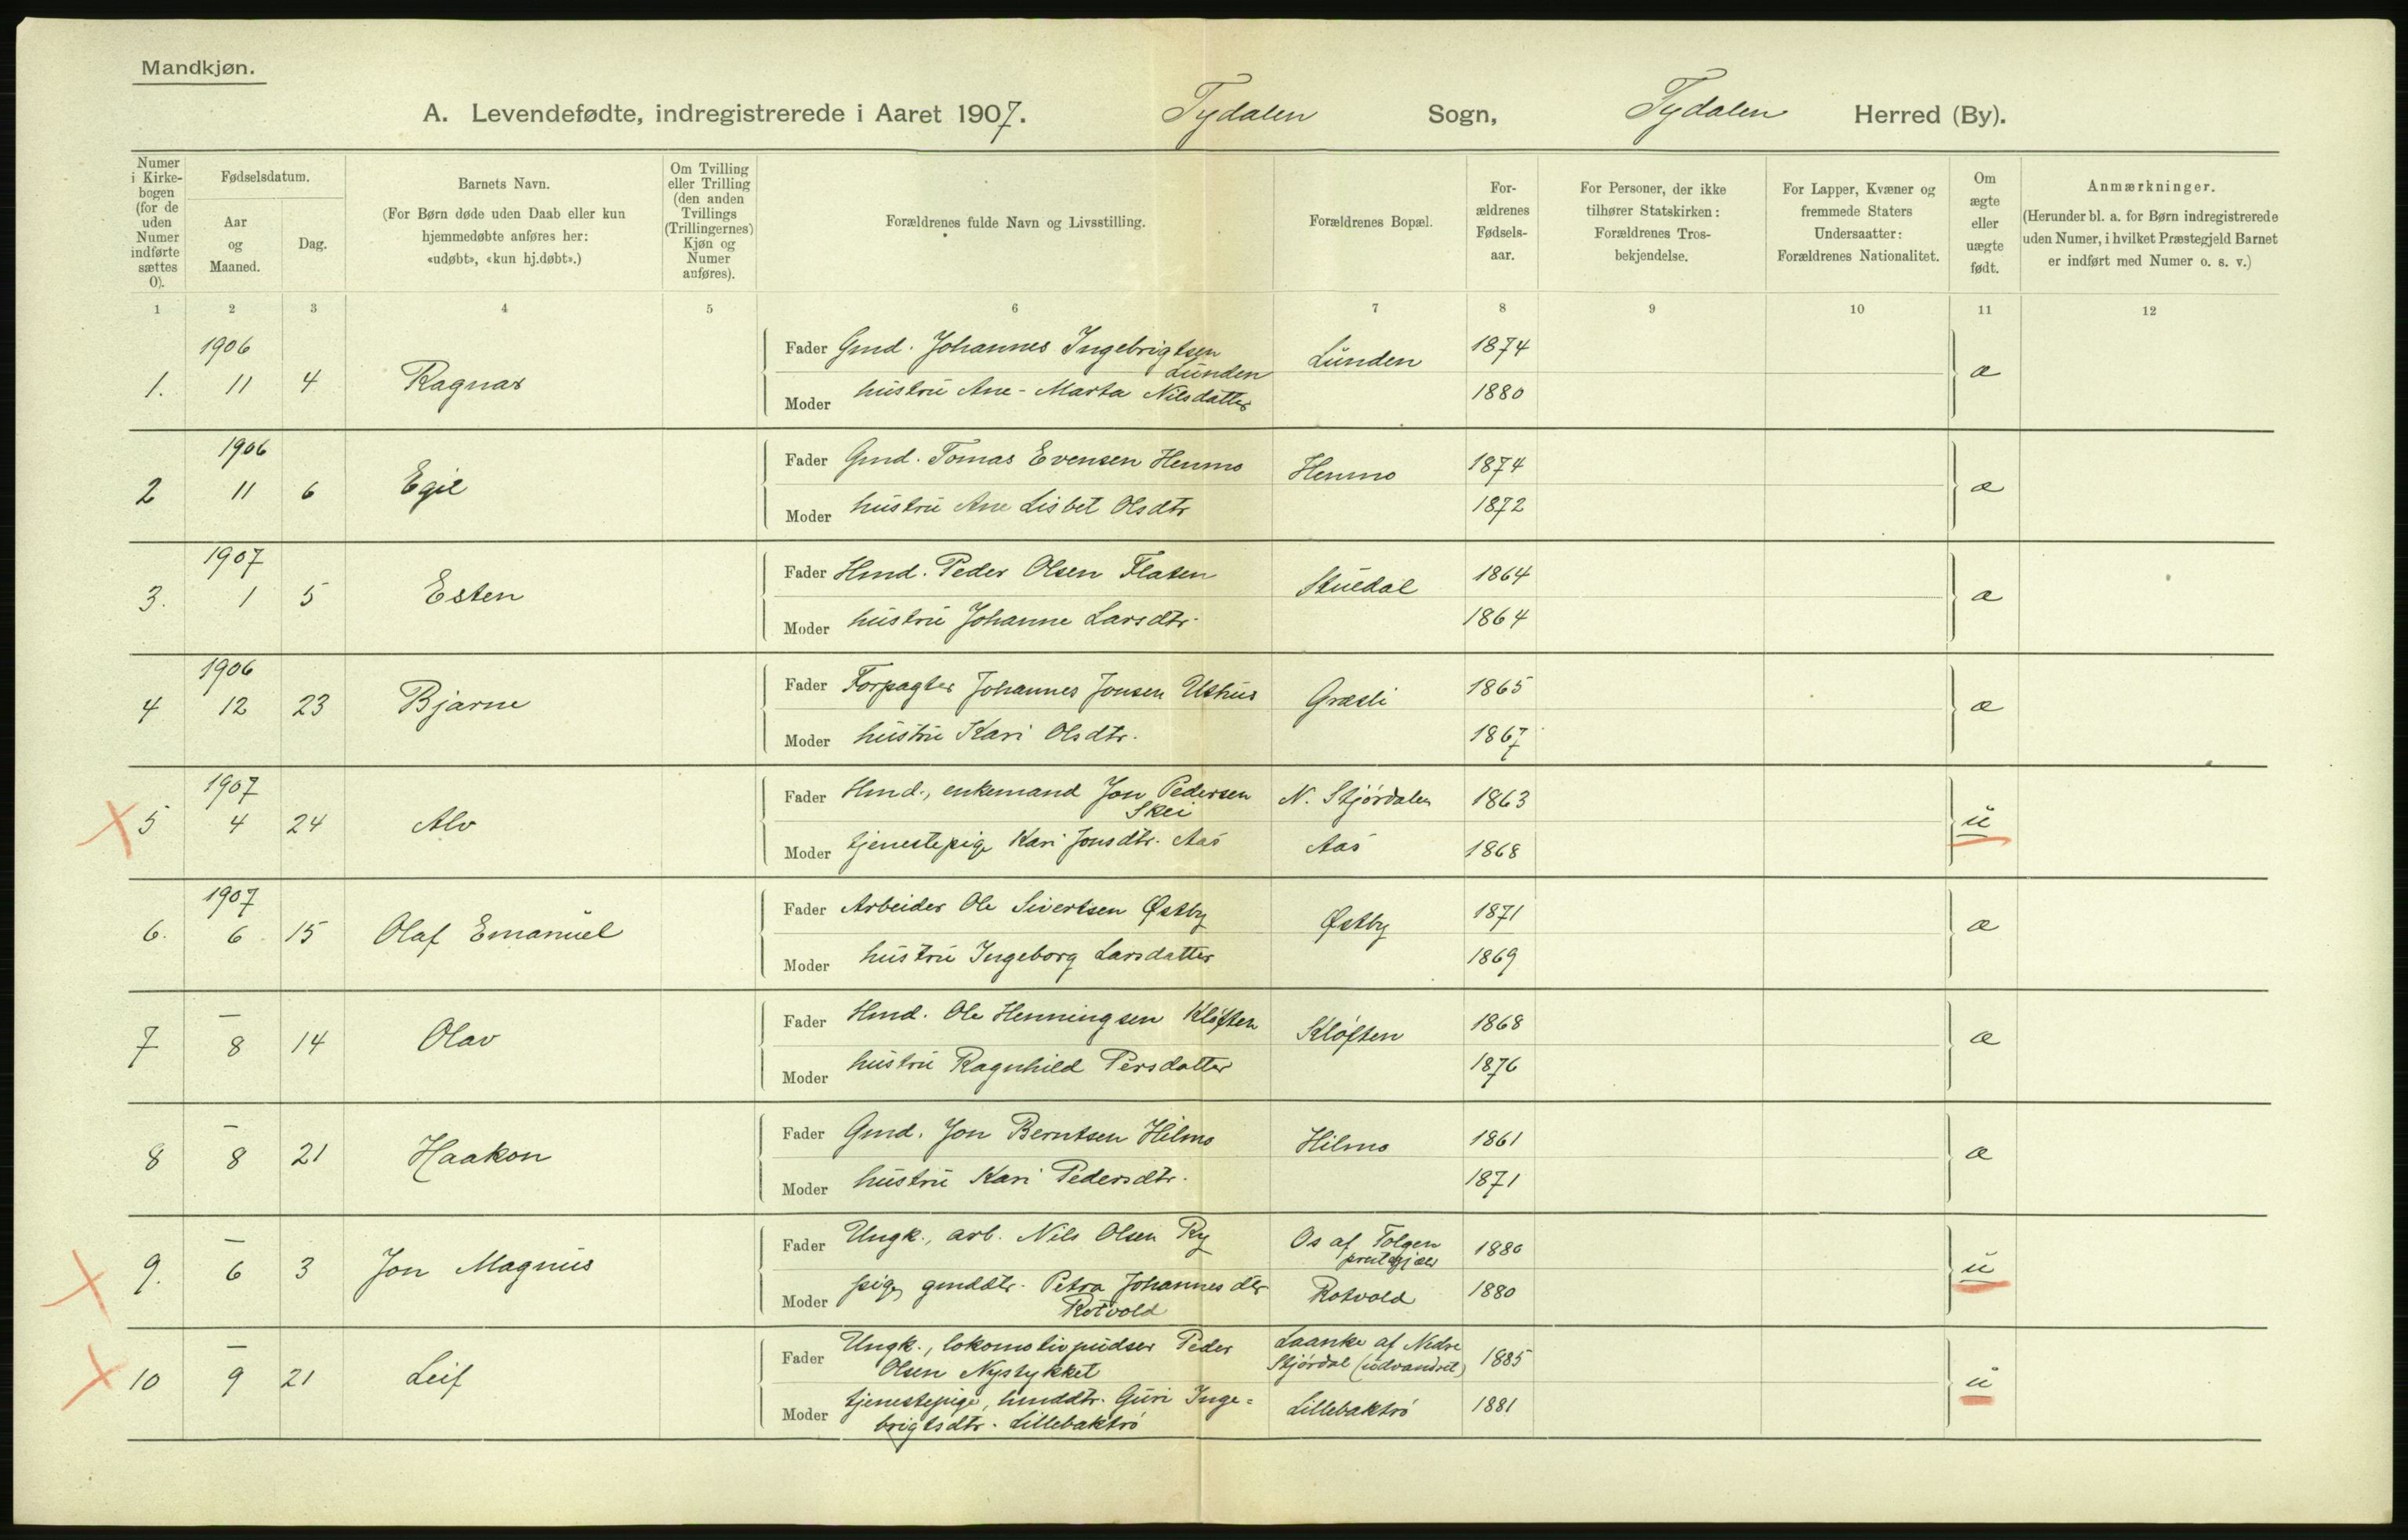 Mandkjøn.
A. Levendefødte, indregistrerede i Aaret 1907. Tydalen Sogn, Tydalen Herred (By).
Numer i Kirkebogen (for de uden Numer indførte sættes 0).
Fødselsdatum.
Aar og Maaned.
Dag.
Barnets Navn.
(For Børn døde uden Daab eller kun hjemmedøbte anføres her: «udøbt», «kun hj.døbt».)
Om Tvilling eller Trilling (den anden Tvillings (Trillingernes) Kjøn og Numer anføres).
Forældrenes fulde Navn og Livsstilling.
Forældrenes Bopæl.
Forældrenes Fødselsaar.
For Personer, der ikke tilhører Statskirken: Forældrenes Trosbekjendelse.
For Lapper, Kvæner og fremmede Staters Undersaatter: Forældrenes Nationalitet.
Om ægte eller uægte født.
Anmærkninger.
(Herunder bl. a. for Børn indregistrerede uden Numer, i hvilket Præstegjeld Barnet er indført med Numer o. s. v.)
1 2 3 4 5 6 7 8 9 10 11 12
1. 1906 11 4 Ragnar
Fader Gmd. Johannes Ingebrigtsen Lunden Lunden 1874 æ
Moder hustru Ane-Marta Nilsdatter 1880
2 1906 11 6 Egil
Fader Gmd. Tomas Evensen Henmo Henmo 1874 æ
Moder hustru Ane Lisbet Olsdtr 1872
3. 1907 1 5 Esten
Fader Hmd. Peder Olsen Flaten Stuedal 1864 æ
Moder hustru Johanne Larsdtr. 1864
4 1906 12 23 Bjarne
Fader Forpagter Johannes Jonsen Uthus Græsli 1865 æ
Moder hustru Kari Olsdtr. 1867
5 1907 4 24 Alv
Fader Hmd., enkemand Jon Pedersen Skei N. Stjørdalen 1863 u
Moder tjenestepige Kari Jonsdtr. Aas Aas 1868
6. 1907 6 15 Olaf Emanuel
Fader Arbeider Ole Sivertsen Østby Østby 1871 æ
Moder hustru Ingeborg Larsdatter 1869
7 — 8 14 Olav
Fader Hmd. Ole Henningsen Kløften Kløften 1868 æ
Moder hustru Ragnhild Persdatter 1876
8 — 8 21 Haakon
Fader Gmd. Jon Berntsen Hilmo Hilmo 1861 æ
Moder hustru Kari Pedersdtr. 1871
9. — 6 3 Jon Magnus
Fader Ungk., arb. Nils Olsen Ry Os af Tolgen 1880 u
Moder pige, gmddtr. Petra Johannesdtr Rotvold Rotvold 1880
10 — 9 21 Leif
Fader Ungk., lokomotivpudser Peder Olsen Nystykket Laanke af Nedre Stjørdal (udvandret) 1885 u
Moder tjenestepige, hmddtr. Guri Ingebrigtsdtr. Lillebaktrø Lillebaktrø 1881